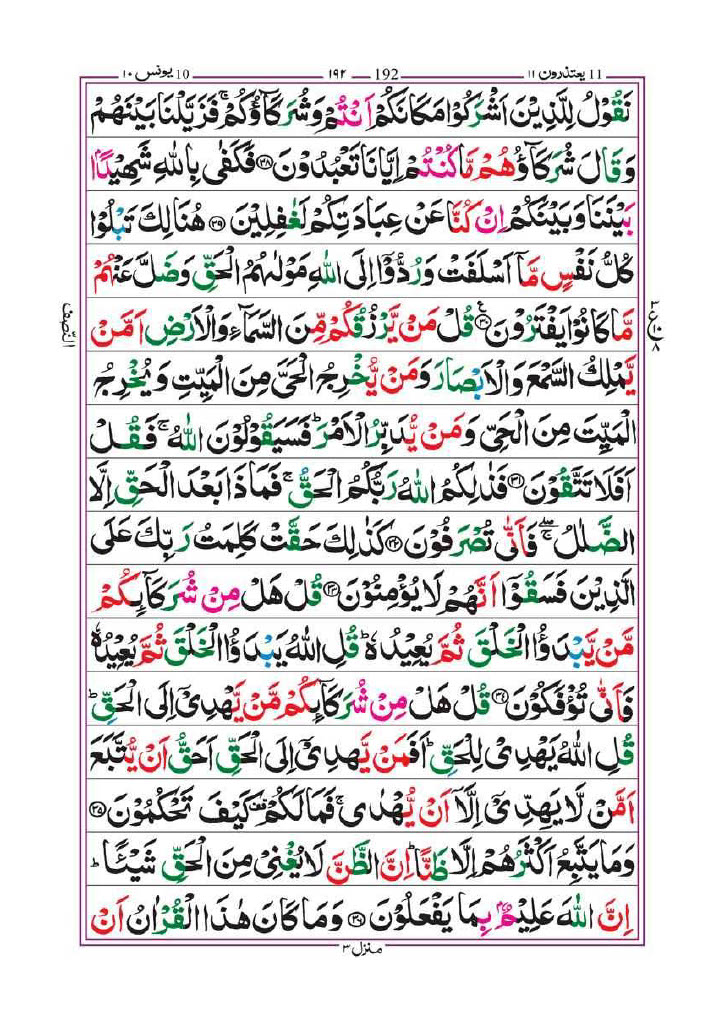 11 يعتذرون ١١ 192 ١٩٢ 10 يونس ١٠
نَقُوْلُ لِلَّذِيْنَ اَشْرَكُوْا مَكَانَكُمْ اَنْتُمْ وَشُرَكَآؤُكُمْ ۚ فَزَيَّلْنَا بَيْنَهُمْ
وَقَالَ شُرَكَآؤُهُمْ مَّا كُنْتُمْ اِيَّانَا تَعْبُدُوْنَ ﴿۲۸﴾ فَكَفٰى بِاللّٰهِ شَهِيْدًۢا
بَيْنَنَا وَبَيْنَكُمْ اِنْ كُنَّا عَنْ عِبَادَتِكُمْ لَغٰفِلِيْنَ ﴿۲۹﴾ هُنَالِكَ تَبْلُوْا
كُلُّ نَفْسٍ مَّآ اَسْلَفَتْ وَرُدُّوْٓا اِلَى اللّٰهِ مَوْلٰىهُمُ الْحَقِّ وَضَلَّ عَنْهُمْ
مَّا كَانُوْا يَفْتَرُوْنَ ﴿۳۰﴾ قُلْ مَنْ يَّرْزُقُكُمْ مِّنَ السَّمَآءِ وَالْاَرْضِ اَمَّنْ
يَّمْلِكُ السَّمْعَ وَالْاَبْصَارَ وَمَنْ يُّخْرِجُ الْحَىَّ مِنَ الْمَيِّتِ وَيُخْرِجُ
الْمَيِّتَ مِنَ الْحَىِّ وَمَنْ يُّدَبِّرُ الْاَمْرَ ؕ فَسَيَقُوْلُوْنَ اللّٰهُ ۚ فَقُلْ
اَفَلَا تَتَّقُوْنَ ﴿۳۱﴾ فَذٰلِكُمُ اللّٰهُ رَبُّكُمُ الْحَقُّ ۚ فَمَاذَا بَعْدَ الْحَقِّ اِلَّا
الضَّلٰلُ ۖۚ فَاَنّٰى تُصْرَفُوْنَ ﴿۳۲﴾ كَذٰلِكَ حَقَّتْ كَلِمَتُ رَبِّكَ عَلَى
الَّذِيْنَ فَسَقُوْٓا اَنَّهُمْ لَا يُؤْمِنُوْنَ ﴿۳۳﴾ قُلْ هَلْ مِنْ شُرَكَآئِكُمْ
مَّنْ يَّبْدَؤُا الْخَلْقَ ثُمَّ يُعِيْدُهٗ ؕ قُلِ اللّٰهُ يَبْدَؤُا الْخَلْقَ ثُمَّ يُعِيْدُهٗ
فَاَنّٰى تُؤْفَكُوْنَ ﴿۳۴﴾ قُلْ هَلْ مِنْ شُرَكَآئِكُمْ مَّنْ يَّهْدِىْۤ اِلَى الْحَقِّ ؕ
قُلِ اللّٰهُ يَهْدِىْ لِلْحَقِّ ؕ اَفَمَنْ يَّهْدِىْۤ اِلَى الْحَقِّ اَحَقُّ اَنْ يُّتَّبَعَ
اَمَّنْ لَّا يَهِدِّىْۤ اِلَّاۤ اَنْ يُّهْدٰى ۚ فَمَا لَكُمْ كَيْفَ تَحْكُمُوْنَ ﴿۳۵﴾
وَمَا يَتَّبِعُ اَكْثَرُهُمْ اِلَّا ظَنًّا ؕ اِنَّ الظَّنَّ لَا يُغْنِىْ مِنَ الْحَقِّ شَيْئًا ؕ
اِنَّ اللّٰهَ عَلِيْمٌۢ بِمَا يَفْعَلُوْنَ ﴿۳۶﴾ وَمَا كَانَ هٰذَا الْقُرْاٰنُ اَنْ
النصف
منزل ٣